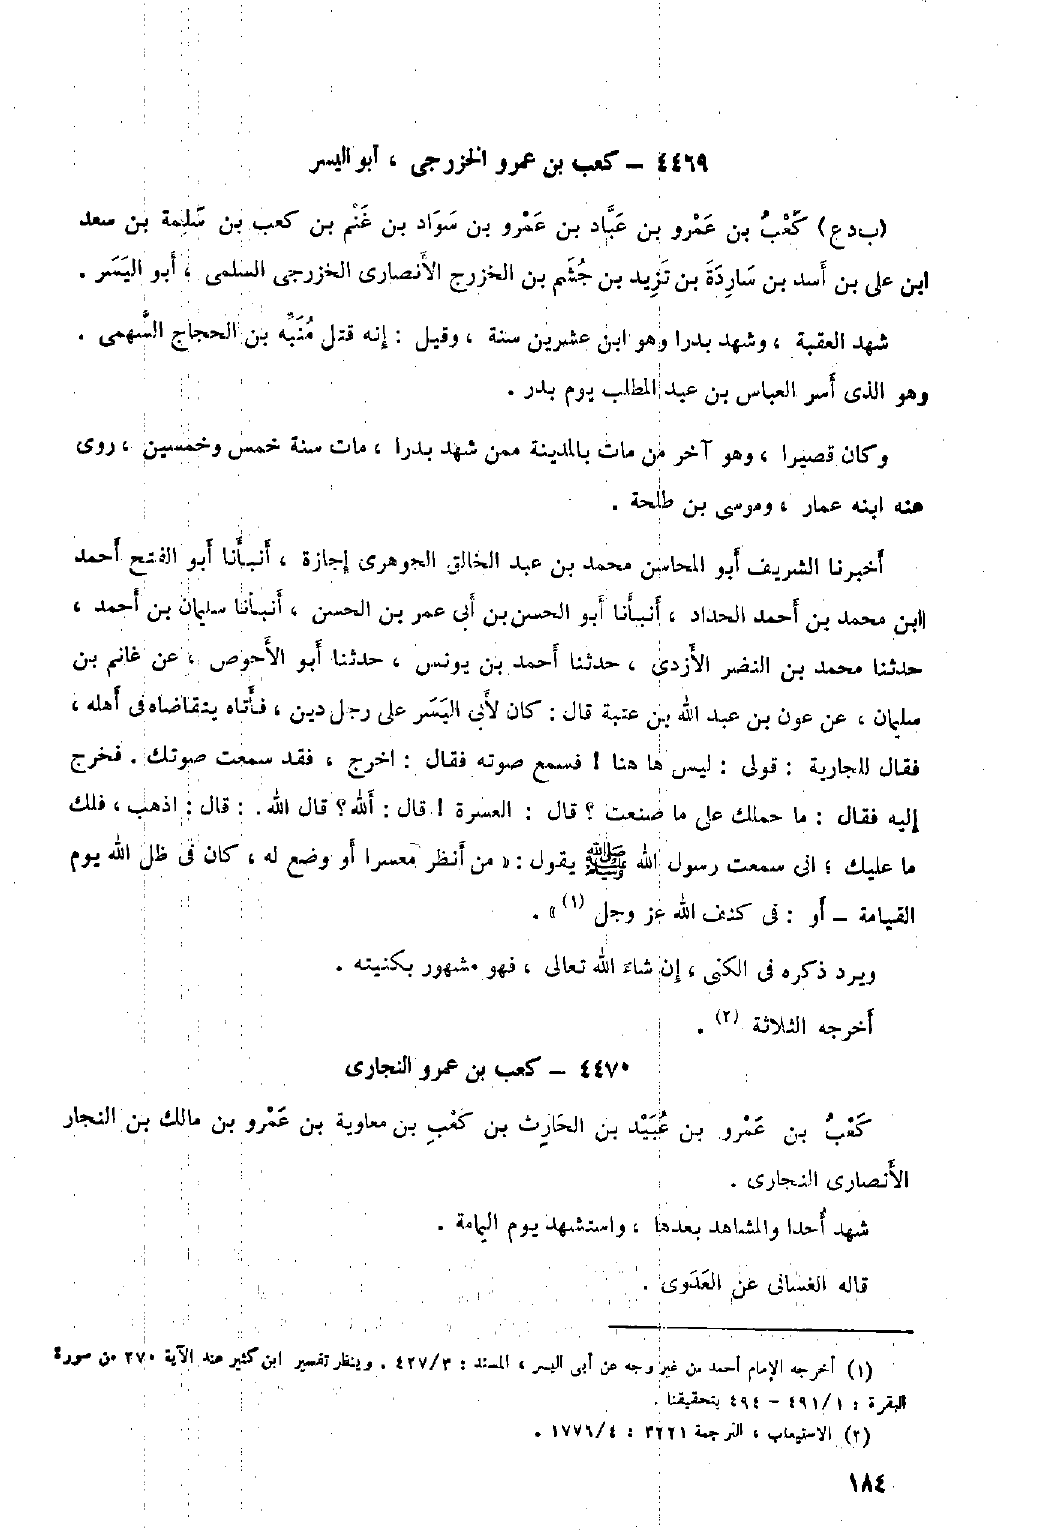 ٤٤٦٩ – كعب بن عمرو الخزرجى ، أبو اليسر
(ب د ع) كَعْبُ بن عَمْرو بن عَبَّاد بن عَمْرو بن سَوَاد بن غَنْم بن كعب بن سَلِمة بن سعد
ابن على بن أسد بن سَارِدَةَ بن تَزِيد بن جُشَم بن الخزرج الأنصارى الخزرجى السلمى ، أبو اليَسَر .
شهد العقبة ، وشهد بدرا وهو ابن عشرين سنة ، وقيل : إنه قتل مُنَبِّه بن الحجاج السَّهمى .
وهو الذى أسر العباس بن عبد المطلب يوم بدر .
وكان قصيرا ، وهو آخر من مات بالمدينة ممن شهد بدرا ، مات سنة خمس وخمسين ، روى
عنه ابنه عمار ، وموسى بن طلحة .
أخبرنا الشريف أبو المحاسن محمد بن عبد الخالق الجوهرى إجازة ، أنبأنا أبو الفتح أحمد
ابن محمد بن أحمد الحداد ، أنبأنا أبو الحسن بن أبى عمر بن الحسن ، أنبأنا سليمان بن أحمد ،
حدثنا محمد بن النضر الأزدى ، حدثنا أحمد بن يونس ، حدثنا أبو الأحوص ، عن غانم بن
سليمان ، عن عون بن عبد الله بن عتبة قال : كان لأبى اليَسَر على رجل دين ، فأتاه يتقاضاه فى أهله ،
فقال للجارية : قولى : ليس ها هنا ! فسمع صوته فقال : اخرج ، فقد سمعت صوتك . فخرج
إليه فقال : ما حملك على ما صنعت ؟ قال : العسرة ! قال : ألله ؟ قال الله . : قال : اذهب ، فلك
ما عليك ؛ انى سمعت رسول الله ﷺ يقول : « من أنظر معسرا أو وضع له ، كان فى ظل الله يوم
القيامة – أو : فى كنف الله عز وجل (١) » .
ويرد ذكره فى الكنى ، إن شاء الله تعالى ، فهو مشهور بكنيته .
أخرجه الثلاثة (٢) .
٤٤٧٠ – كعب بن عمرو النجارى
كَعْبُ بن عَمْرو بن عُبَيْد بن الحَارِث بن كعْبِ بن معاوية بن عَمْرو بن مالك بن النجار
الأنصارى النجارى .
شهد أُحدا والمشاهد بعدها ، واستشهد يوم اليمامة .
قاله الغسانى عن العَدَوى .
(١) أخرجه الإمام أحمد من غير وجه عن أبى اليسر ، المسند : ٤٢٧/٣ . وينظر تفسير ابن كثير عند الآية ٢٧٠ من سورة
البقرة : ٤٩١/١ – ٤٩٤ بتحقيقنا .
(٢) الاستيعاب ، الترجمة ٣٢٢١ : ١٧٧٦/٤ .
١٨٤